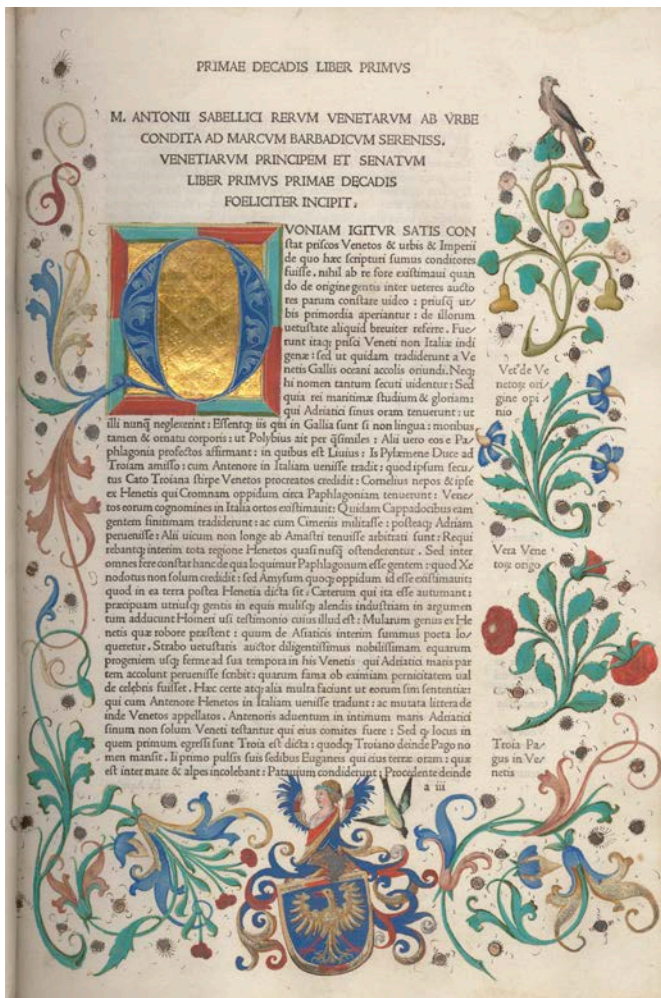 PRIMAE DECADIS LIBER PRIMVS
M. ANTONII SABELLICI RERVM VENETARVM AB VRBE
CONDITA AD MARCVM BARBADICVM SERENISS.
VENETIARVM PRINCIPEM ET SENATVM
LIBER PRIMVS PRIMAE DECADIS
FOELICITER INCIPIT.
QVONIAM IGITVR SATIS CON
stat priscos Venetos & urbis & Imperii
de quo hæc scripturi sumus conditores
fuisse, nihil ab re fore existimaui quan
do de origine gentis inter ueteres aucto
res parum constare uideo : priusq̃ ur/
bis primordia aperiantur : de illorum
uetustate aliquid breuiter referre. Fue/
runt itaq; prisci Veneti non Italiæ indi
genæ : sed ut quidam tradiderunt a Ve
netis Gallis oceani accolis oriundi. Neq;
hi nomen tantum secuti uidentur : Sed
quia rei maritimæ studium & gloriam:
qui Adriatici sinus oram tenuerunt : ut
illi nunq̃ neglexerint : Essentq; iis qui in Gallia sunt si non lingua : moribus
tamen & ornatu corporis : ut Polybius ait per q̃similes : Alii uero eos e Pa/
phlagonia profectos affirmant : in quibus est Liuius : Is Pylæmene Duce ad
Troiam amisso : cum Antenore in Italiam uenisse tradit : quod ipsum secu/
tus Cato Troiana stirpe Venetos procreatos credidit : Cornelius nepos & ipse
ex Henetis qui Cromnam oppidum circa Paphlagoniam tenuerunt : Vene/
tos eorum cognomines in Italia ortos existimauit: Quidam Cappadocibus eam
gentem finitimam tradiderunt : ac cum Cimeriis militasse : posteaq; Adriam
peruenisse : Alii uicum non longe ab Amastri tenuisse arbitrati sunt : Requi
rebantq; interim tota regione Henetos quasi nusq̃ ostenderentur . Sed inter
omnes fere constat hanc de qua loquimur Paphlagonum esse gentem : quod Xe
nodotus non solum credidit : sed Amysum quoq; oppidum id esse existimauit:
quod in ea terra postea Henetia dicta sit : Cæterum qui ita esse autumant :
præcipuam utriusq; gentis in equis mulisq; alendis industriam in argumen
tum adducunt Homeri usi testimonio cuius illud est : Mularum genus ex He
netis quæ robore præstent : quum de Asiaticis interim summus poeta lo/
queretur . Strabo uetustatis auctor diligentissimus nobilissimam equarum
progeniem usq; ferme ad sua tempora in his Venetis qui Adriatici maris par
tem accolunt peruenisse scribit : quarum fama ob eximiam pernicitatem ual
de celebris fuisset . Hæc certe atq; alia multa faciunt ut eorum sim sententiæ:
qui cum Antenore Henetos in Italiam uenisse tradunt : ac mutata littera de
inde Venetos appellatos . Antenoris aduentum in intimum maris Adriatici
sinum non solum Veneti testantur qui eius comites fuere : Sed q̃ locus in
quem primum egressi sunt Troia est dicta : quodq; Troiano deinde Pago no
men mansit . Ii primo pulsis suis sedibus Euganeis qui eius terræ oram : quæ
est inter mare & alpes incolebant : Patauium condiderunt : Procedente deinde
a iii
Vet᷑ de Ve
netoꝝ ori/
gine opi
nio
Vera Vene
toꝝ origo
Troia Pa/
gus in Ve/
netis